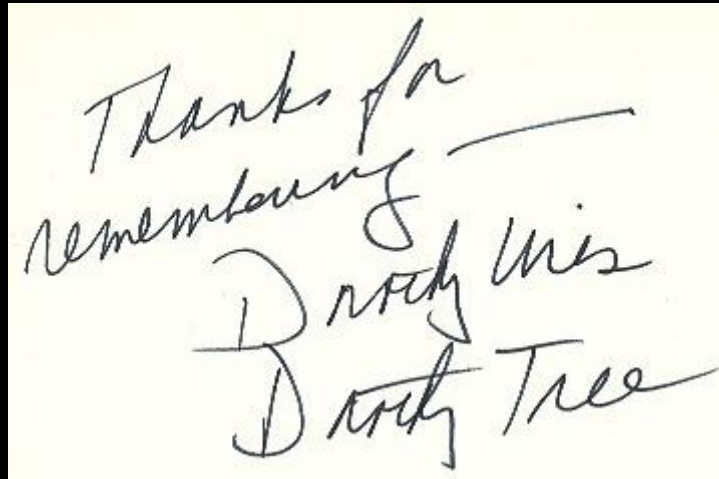 Thanks for
remembering —
Dorothy Uris
Dorothy Tree